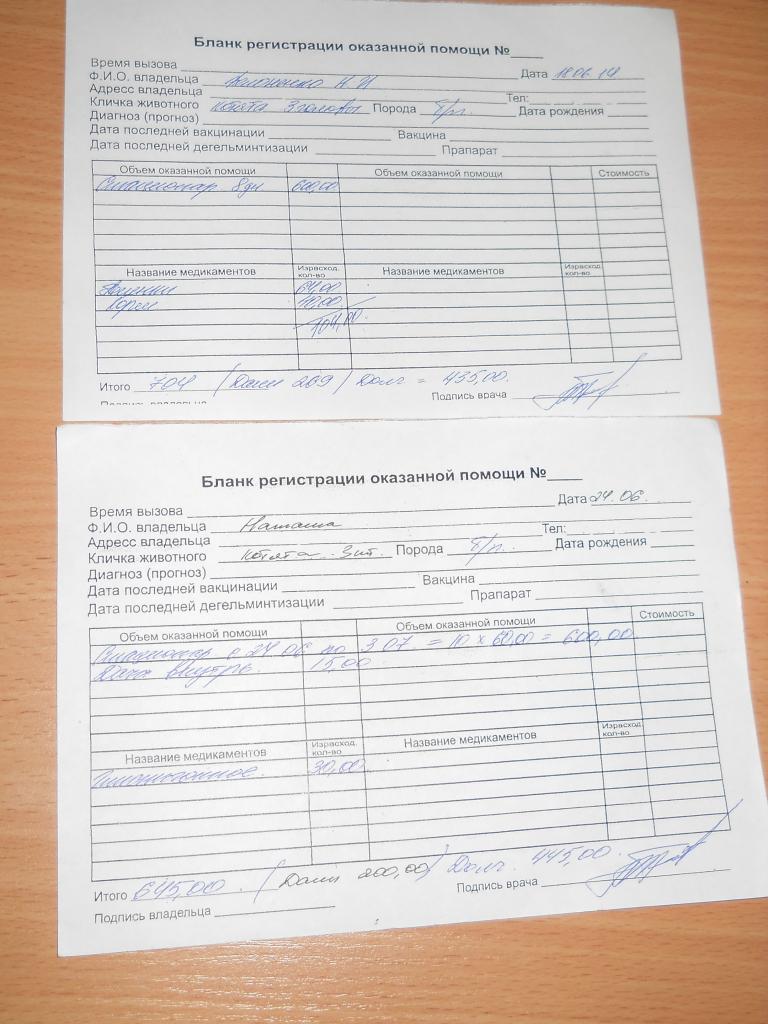 Бланк регистрации оказанной помощи №
Время вызова Дата 18.06.14
Ф.И.О. владельца Н И
Адресс владельца Тел:
Кличка животного котята 3 головы Порода б/п. Дата рождения
Диагноз (прогноз)
Дата последней вакцинации Вакцина
Дата последней дегельминтизации Прапарат
Объем оказанной помощи Объем оказанной помощи Стоимость
Стационар 8 дн 600,00
Название медикаментов Израсход. кол-во Название медикаментов Израсход. кол-во
64,00
Корм 40,00
704,00.
Итого 704 (Дали 269) Долг = 435,00.
Подпись врача
Подпись владельца
Бланк регистрации оказанной помощи №
Время вызова Дата 24.06.
Ф.И.О. владельца Наташа
Адресс владельца Тел:
Кличка животного котята 3 шт. Порода б/п. Дата рождения
Диагноз (прогноз)
Дата последней вакцинации Вакцина
Дата последней дегельминтизации Прапарат
Объем оказанной помощи Объем оказанной помощи Стоимость
Стационар с 24.06 по 3.07. = 10 х 60,00 = 600,00
Дача внутрь. 15,00
Название медикаментов Израсход. кол-во Название медикаментов Израсход. кол-во
30,00
Итого 645,00. (Дали 200,00) Долг. 445,00.
Подпись врача
Подпись владельца